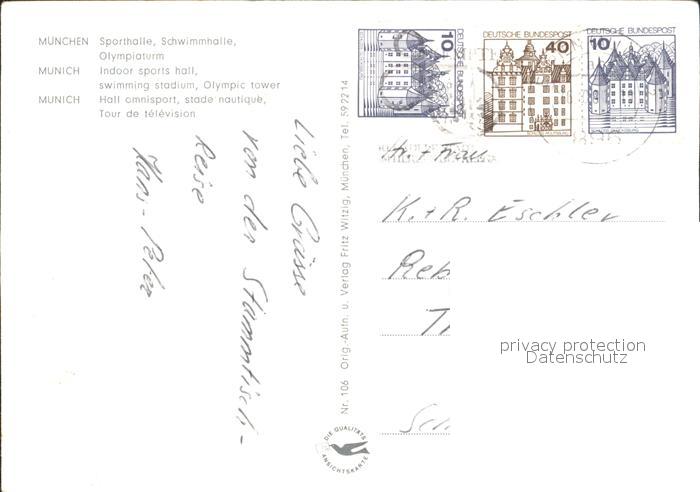 MÜNCHEN Sporthalle, Schwimmhalle,
Olympiaturm
MUNICH Indoor sports hall,
swimming stadium, Olympic tower
MUNICH Hall omnisport, stade nautique,
Tour de télévision
Liebe Grüsse
von der Stammtisch-
Reise
Hans-Peter
Nr. 106 Orig.-Aufn. u. Verlag Fritz Witzig, München, Tel. 592214
DIE QUALITÄTS
ANSICHTSKARTE
10 DEUTSCHE BUNDESPOST
DEUTSCHE BUNDESPOST
40
DEUTSCHE BUNDESPOST
10
SCHLOSS GLÜCKSBURG
Hr. + Frau
K. + R. Eschler
Reb
Th
Sch
privacy protection
Datenschutz